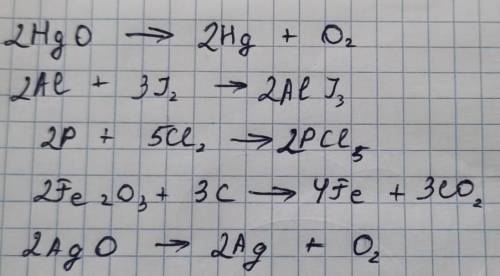 2HgO → 2Hg + O₂
2Al + 3J₂ → 2AlJ₃
2P + 5Cl₂ → 2PCl₅
2Fe₂O₃ + 3C → 4Fe + 3CO₂
2AgO → 2Ag + O₂